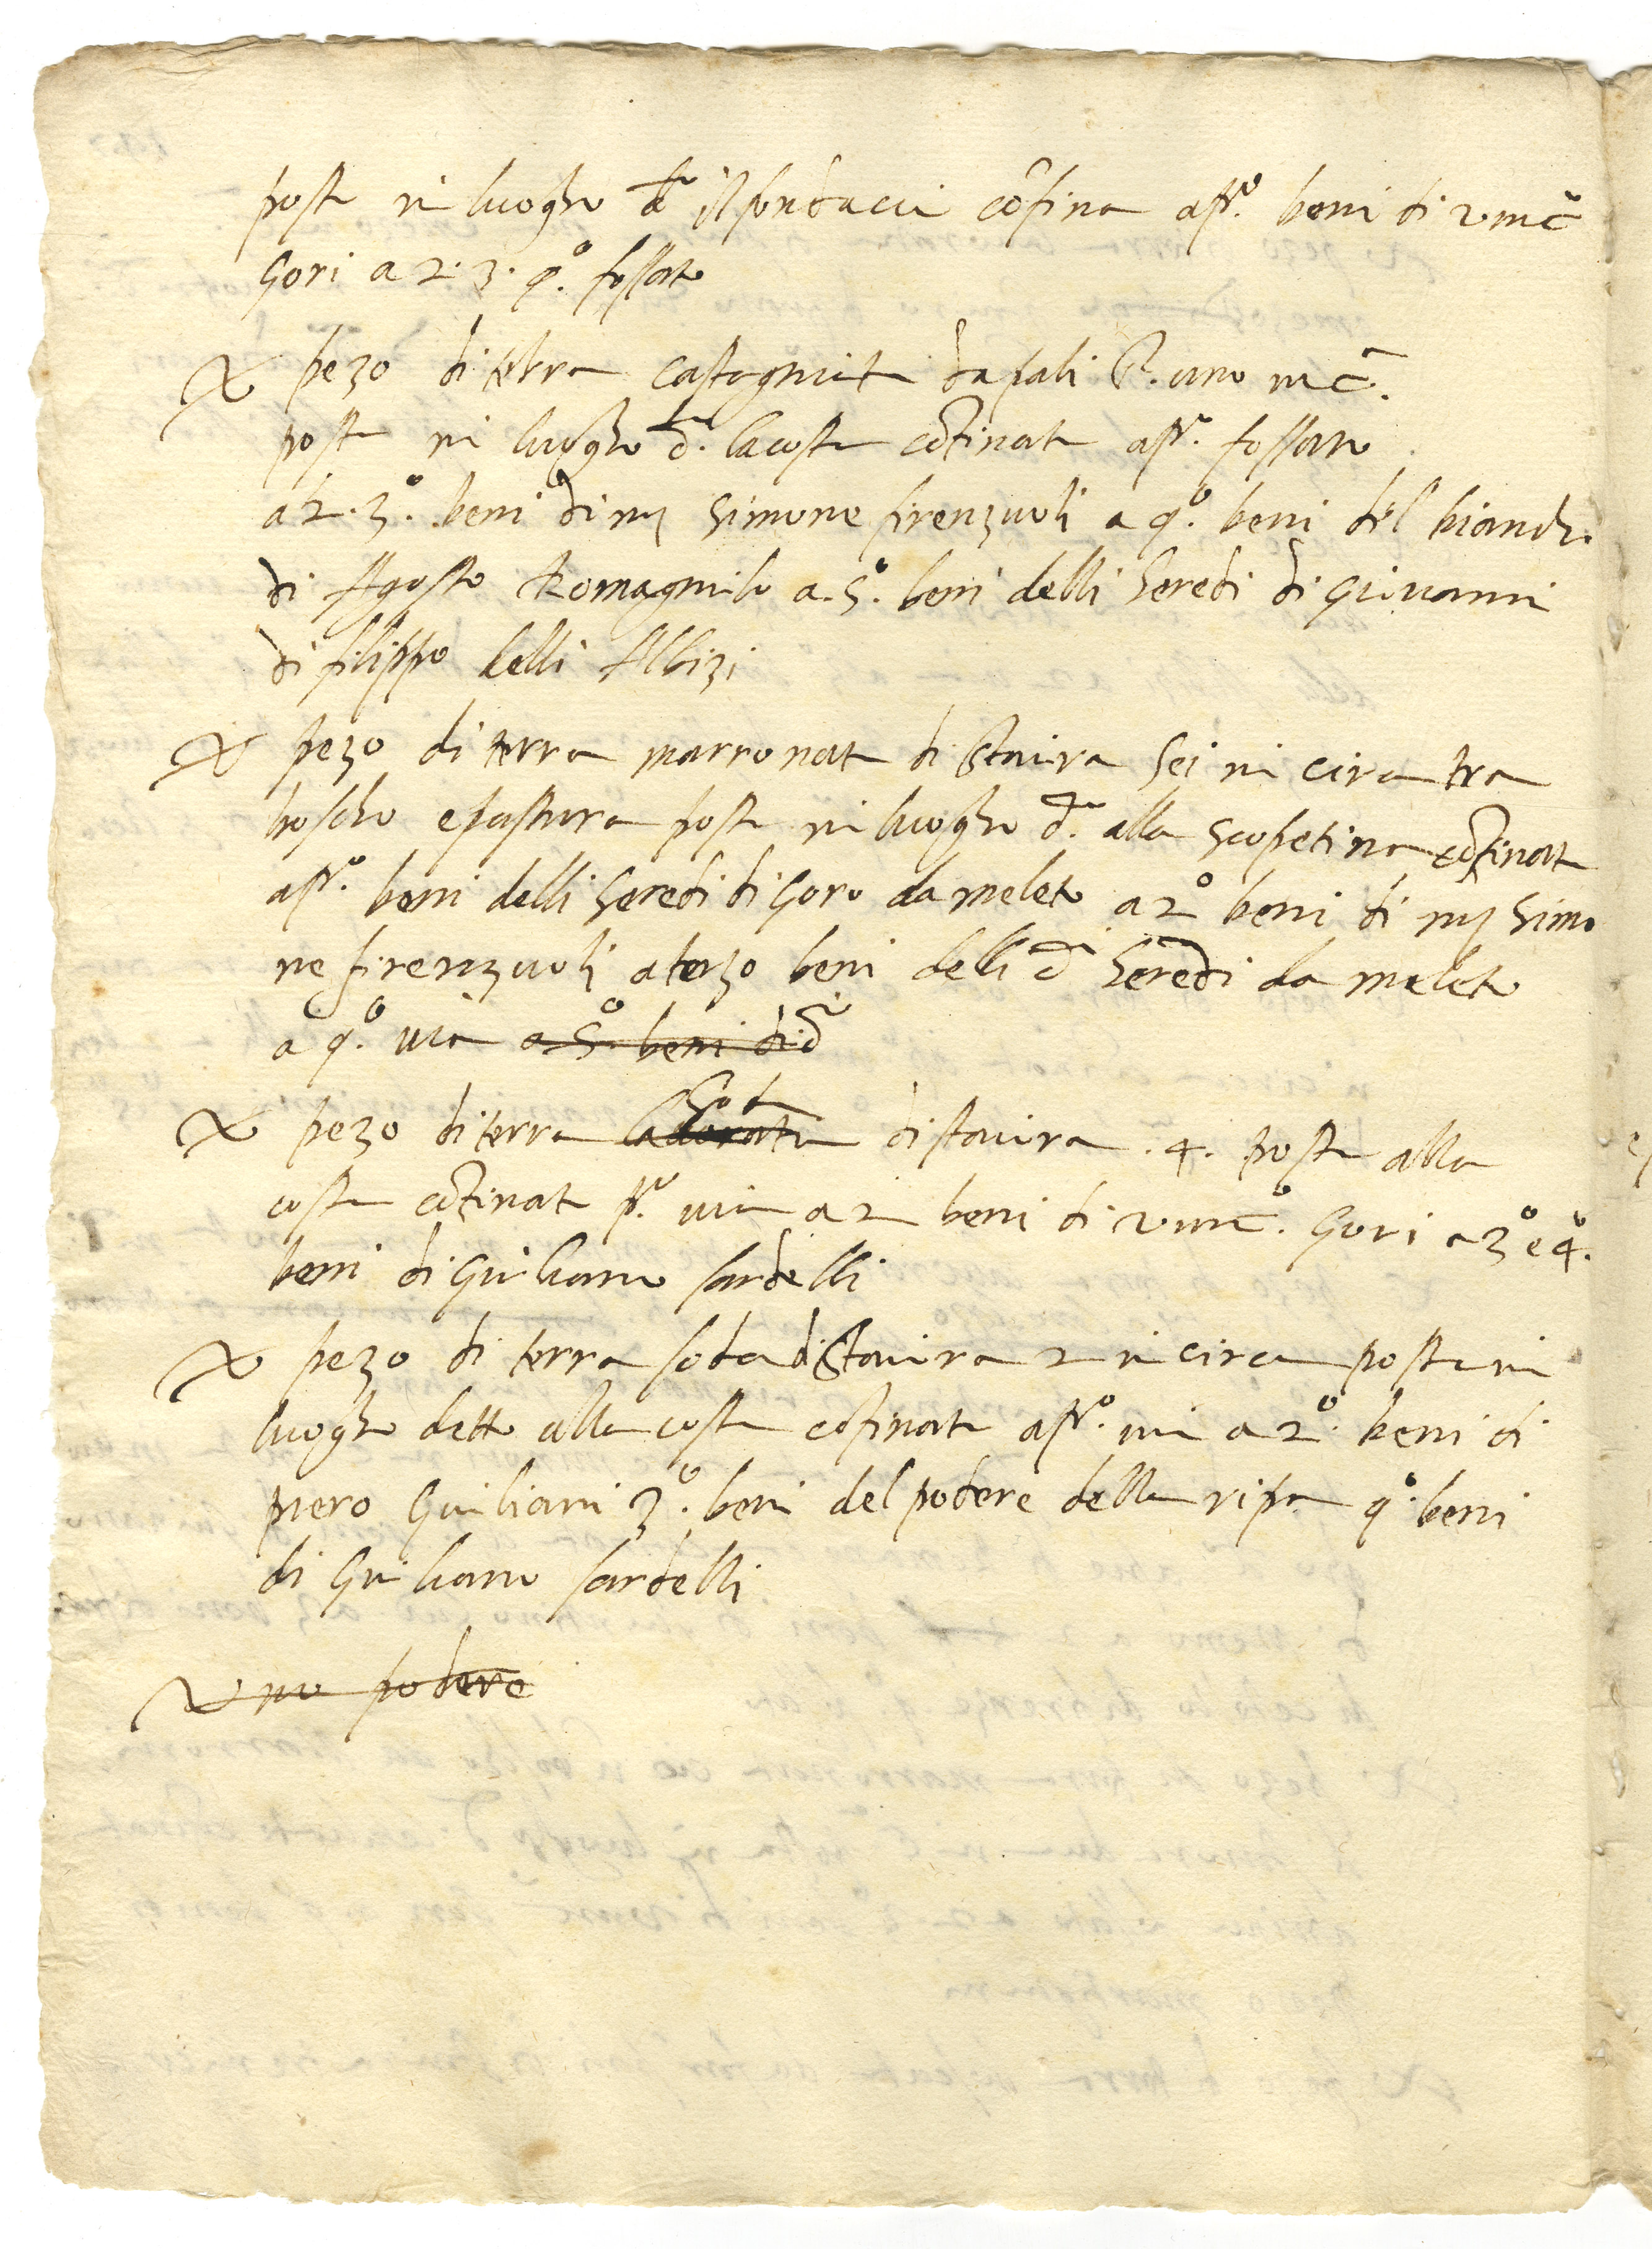 posta in luogho d° il fondaccio cõfina a p° beni di vinc°
Gori a 2. 3. q° fossato
Uº pezo di terra castagniata da pali st° uno inc°
posta in luogho d° la costa cõfinata a p° fossato
a 2. 3° beni di mj simone firenzuoli a q° beni del biancho
di Agosto Romagniolo a. 5° beni delli heredi di Giovanni
di filippo delli Albizi
Uº pezo di terra marronata di staiora sei in circa tra
boscho e pastura posta in luogho d° alla scopetina cõfinata
a p° beni delli heredi di Goro da meleto a 2° beni di mj simo
ne firenzuoli a terzo beni delli d¹ heredi da meleto
a q° via a 5° beni di d°
Uº pezo di terra lavorata soda di staiora .4. posta alla
costa cõfinata p° via a 2 beni di vinc° Gori a 3° e 4°
beni di Giuliano sardelli
Uº pezo di terra soda di staiora 2 in circa posta in
luogho detto alla costa cõfinata a p° via a 2° beni di
piero Giuliani 3° beni del podere della ripa q° beni
di Giuliano sardelli
Uno podere